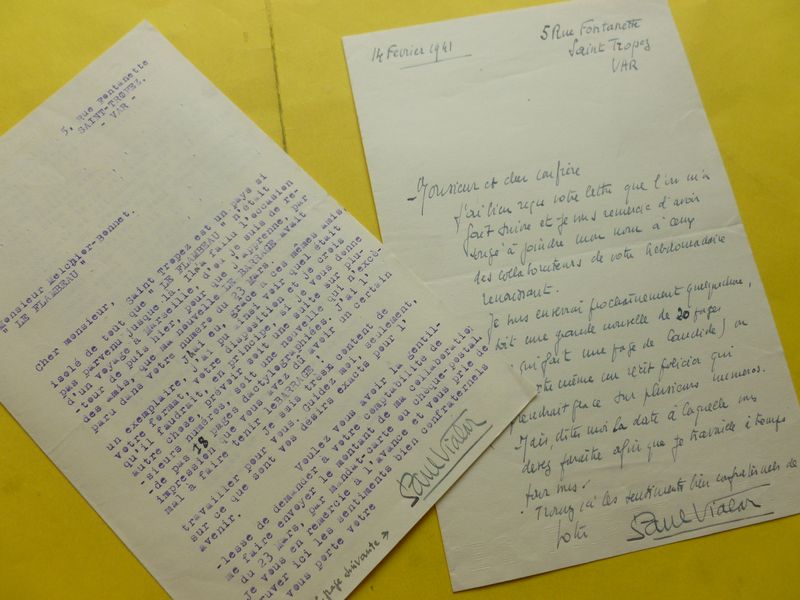 5, Rue Fontanette
SAINT-TROPEZ.
- VAR -
Monsieur Melchior-Bonnet.
" LE FLAMBEAU "
Cher monsieur, Saint Tropez est un pays si
isolé de tout que " LE FLAMBEAU " n'était
pas parvenu jusque là. Il a fallu l'occasion
d'un voyage à Marseille, d'où je suis de re-
-tour depuis hier, pour que j'apprenne, par
des amis, que ma nouvelle LE BARRAGE avait
paru dans votre numéro du 23 mars.
J'ai eu, grâce à ces mêmes amis,
un exemplaire, j'ai pu voir quel était
votre format, votre disposition et je crois
qu'il faudrait, en principe, si je vous donne
autre chose, prévoir soit une suite sur plu-
-sieurs numéros, soit une nouvelle qui n'excè-
-de pas 18 pages dactylographiées. J'ai l'
impression que vous avez dû avoir un certain
mal à faire tenir le BARRAGE !
Je serais trop content de
travailler pour vous. Guidez moi, seulement,
sur ce que sont vos désirs exacts pour l'
avenir.
Voulez vous avoir la gentil-
-lesse de demander à votre comptabilité de
me faire envoyer le montant de ma collaboration
du 23 mars, par mandat-carte ou chèque-postal.
Je vous en remercie à l'avance et vous prie de
-uver ici les sentiments bien confraternels
vous porte votre
Paul Vialar
page suivante →
14 Fevrier 1941
5 Rue Fontanette
Saint Tropez
VAR
Monsieur et cher confrère
J'ai bien reçu votre lettre que l'on m'a
fait suivre et je vous remercie d'avoir
songé à joindre mon nom à ceux
des collaborateurs de votre hebdomadaire
renaissant.
Je vous enverrai prochainement quelquechose,
soit une grande nouvelle de 20 pages
(qui fait une page de Candide) ou
même un récit policier qui
prendrait place sur plusieurs numeros.
Mais, dites moi la date à laquelle vous
devez paraître afin que je travaille à temps
pour vous.
Trouvez ici les sentiments bien confraternels de
votre
Paul Vialar